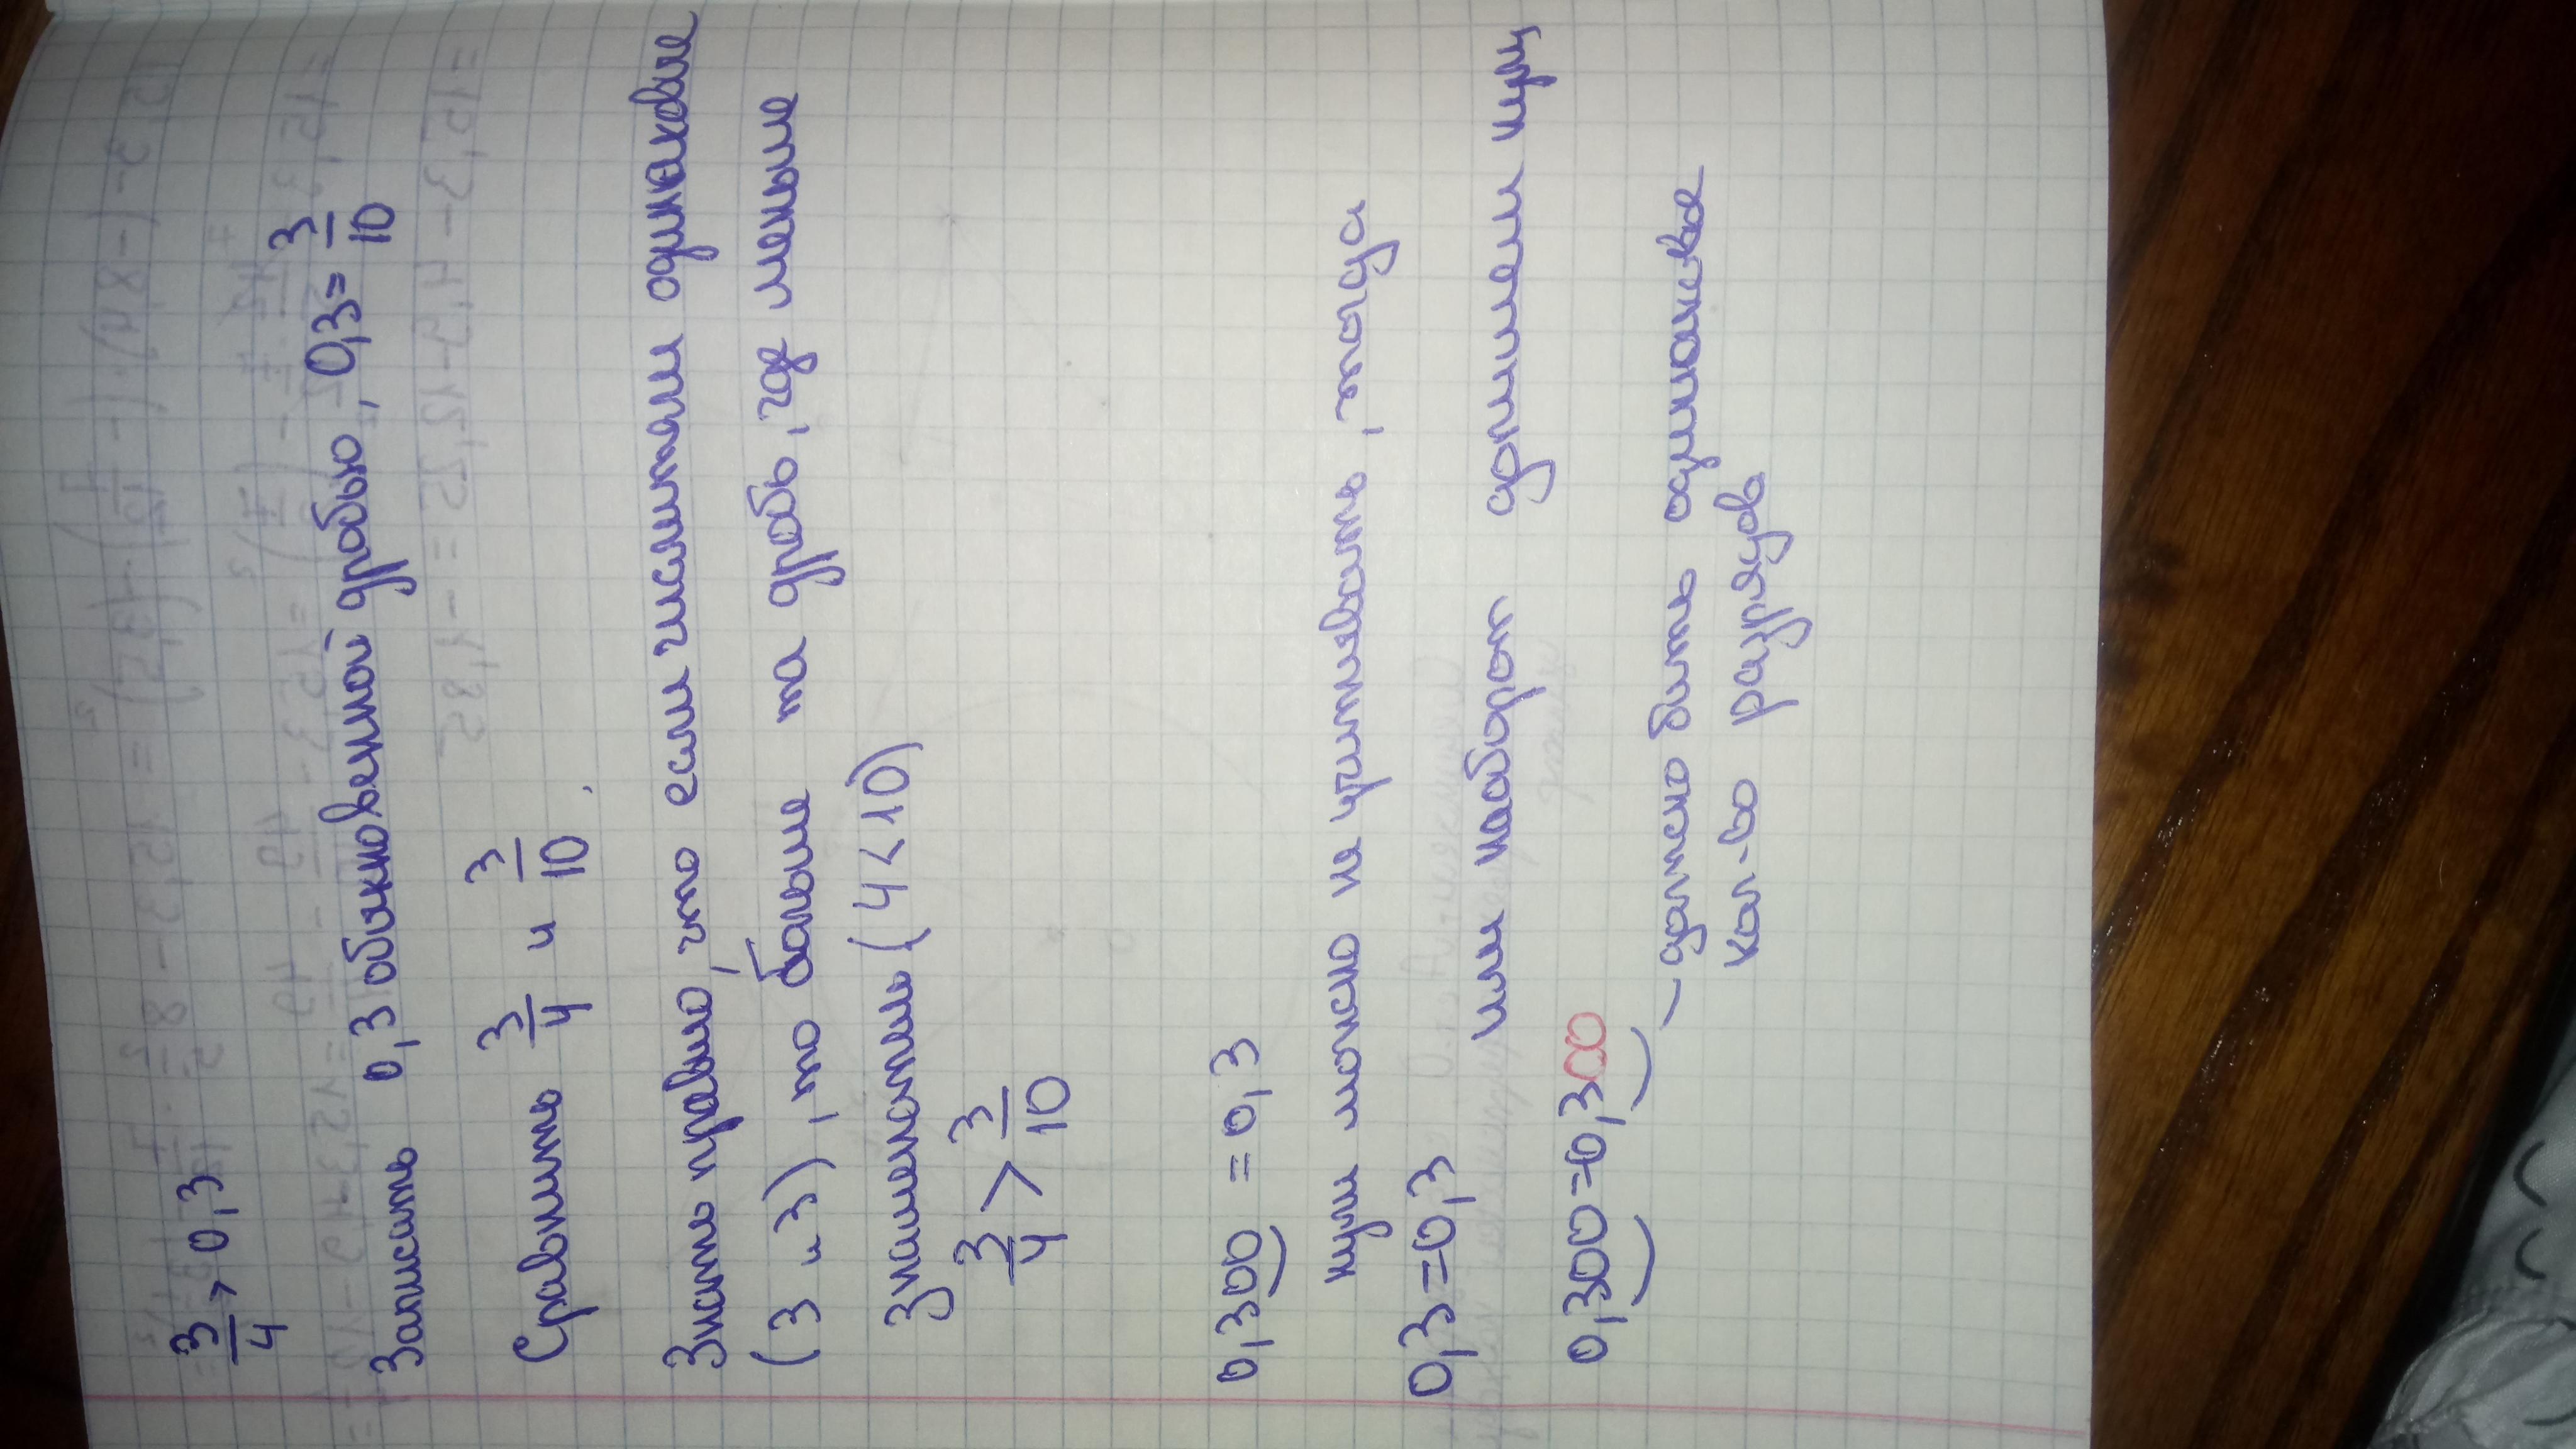 3/4 > 0,3
Записать 0,3 обыкновенной дробью, 0,3 = 3/10
Сравнить 3/4 и 3/10.
Знать правило, что если числители одинаковые
(3 и 3), то больше та дробь, где меньше
знаменатель (4 < 10)
3/4 > 3/10
0,300 = 0,3
нули можно не учитывать, тогда
0,3 = 0,3
или наоборот допишем нули
0,300 = 0,300 — должно быть одинаковое
кол-во разрядов